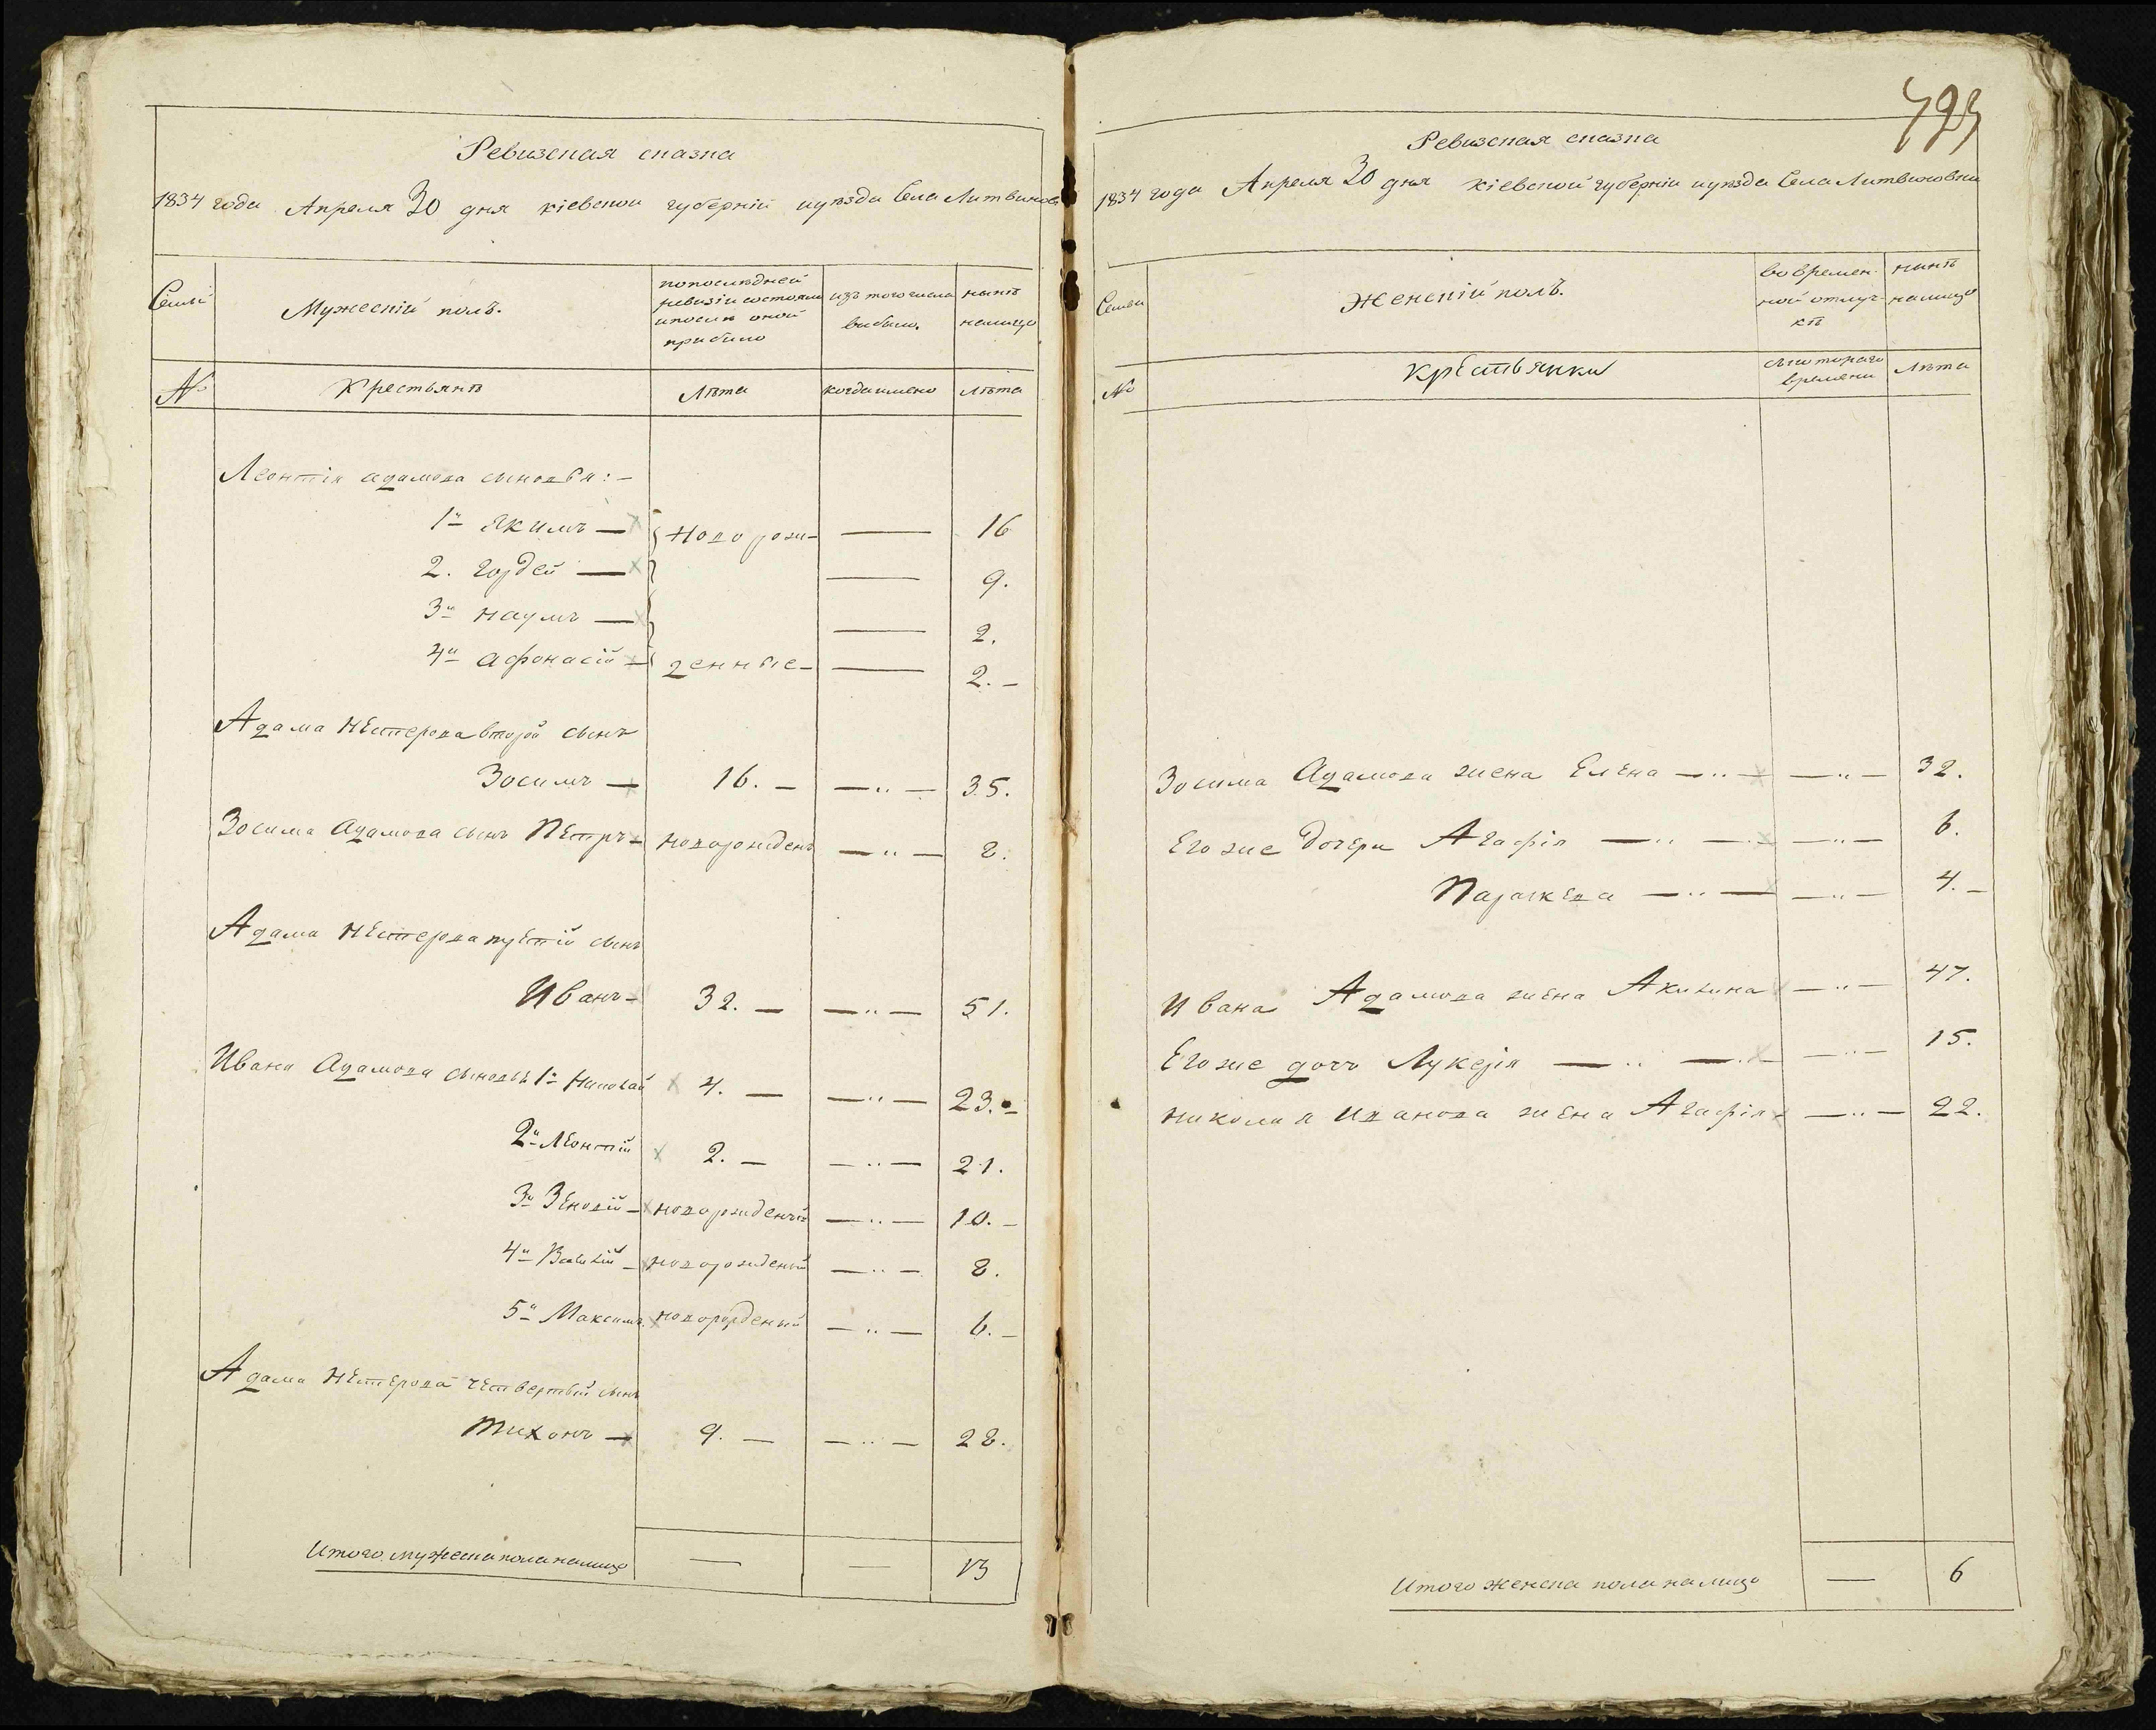 Ревизская сказка
1834 года Апреля 30 дня кіевской губерніи и уѣзда Села Литвинов
Семьи
Мужескій полъ.
по последней ревизіи состояло и после оной прибыло
изъ того числа выбыло.
нынѣ налицо
№
Крестьянѣ
Лѣта
когда имено
Лѣта
Леонтія адамова сыновья: –
1й Якимъ — новорож- — 16
2. гордей — — 9.
3й наумъ — — 2.
4й афонасій — денные — — 2. –
Адама Нестерова второй сынъ
Зосимъ — 16. – —"— 35.
Зосима Адамова сынъ Петръ – новорожденъ —"— 8.
Адама Нестерова третій сынъ
Иванъ – 32. — —"— 51.
Ивана Адамова сыновья 1й Николай 4. — —"— 23. –
2й Леонтій 2. — —"— 21.
3й Зеновій – новорожденый —"— 10. –
4й – новорожденый —"— 8.
5й Максимъ. новорожденый —"— 6. –
Адама Нестерова четвертый сынъ
Тихонъ — 9. — —"— 28.
Итого мужеска пола налицо — — 13
793
Ревизская сказка
1834 года Апреля 30 дня кіевской губерніи и уѣзда Села Литвиновки
Семьи
Женскій полъ.
во времен-ной отлучкѣ
нынѣ налицо
№
Крестьянки
съ котораго времени
Лѣта
Зосима Адамова жена Елена —"— —"— 32.
Его же дочери Агафія —"— —"— 6.
Параскева —"— —"— 4. –
Ивана Адамова жена Акилина —"— 47.
Его же дочь Лукерія —"— —"— 15.
Николая Иванова жена Агафія —"— 22.
Итого женска пола налицо — 6